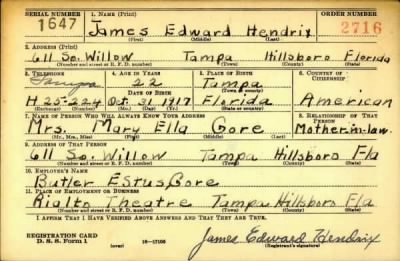 SERIAL NUMBER 1. NAME (Print) ORDER NUMBER
1647 James Edward Hendrix 2716
(First) (Middle) (Last)
2. ADDRESS (Print)
611 So. Willow Tampa Hillsboro Florida
(Number and street or R. F. D. number) (Town) (County) (State)
3. TELEPHONE 4. AGE IN YEARS 5. PLACE OF BIRTH 6. COUNTRY OF CITIZENSHIP
22 Tampa
DATE OF BIRTH (Town or county)
H 25-224 Oct. 31 1917 Florida American
(Mo.) (Day) (Yr.) (State or country)
7. NAME OF PERSON WHO WILL ALWAYS KNOW YOUR ADDRESS 8. RELATIONSHIP OF THAT PERSON
Mrs. Mary Ella Gore Mother-in-law.
(Mr., Mrs., Miss) (First) (Middle) (Last)
9. ADDRESS OF THAT PERSON
611 So. Willow Tampa Hillsboro Fla
(Number and street or R. F. D. number) (Town) (County) (State)
10. EMPLOYER'S NAME
Butler Estus Gore
11. PLACE OF EMPLOYMENT OR BUSINESS
Rialto Theatre Tampa Hillsboro Fla
(Number and street or R. F. D. number) (Town) (County) (State)
I AFFIRM THAT I HAVE VERIFIED ABOVE ANSWERS AND THAT THEY ARE TRUE.
REGISTRATION CARD
D. S. S. Form 1 (over) 16-17105 James Edward Hendrix
(Registrant's signature)